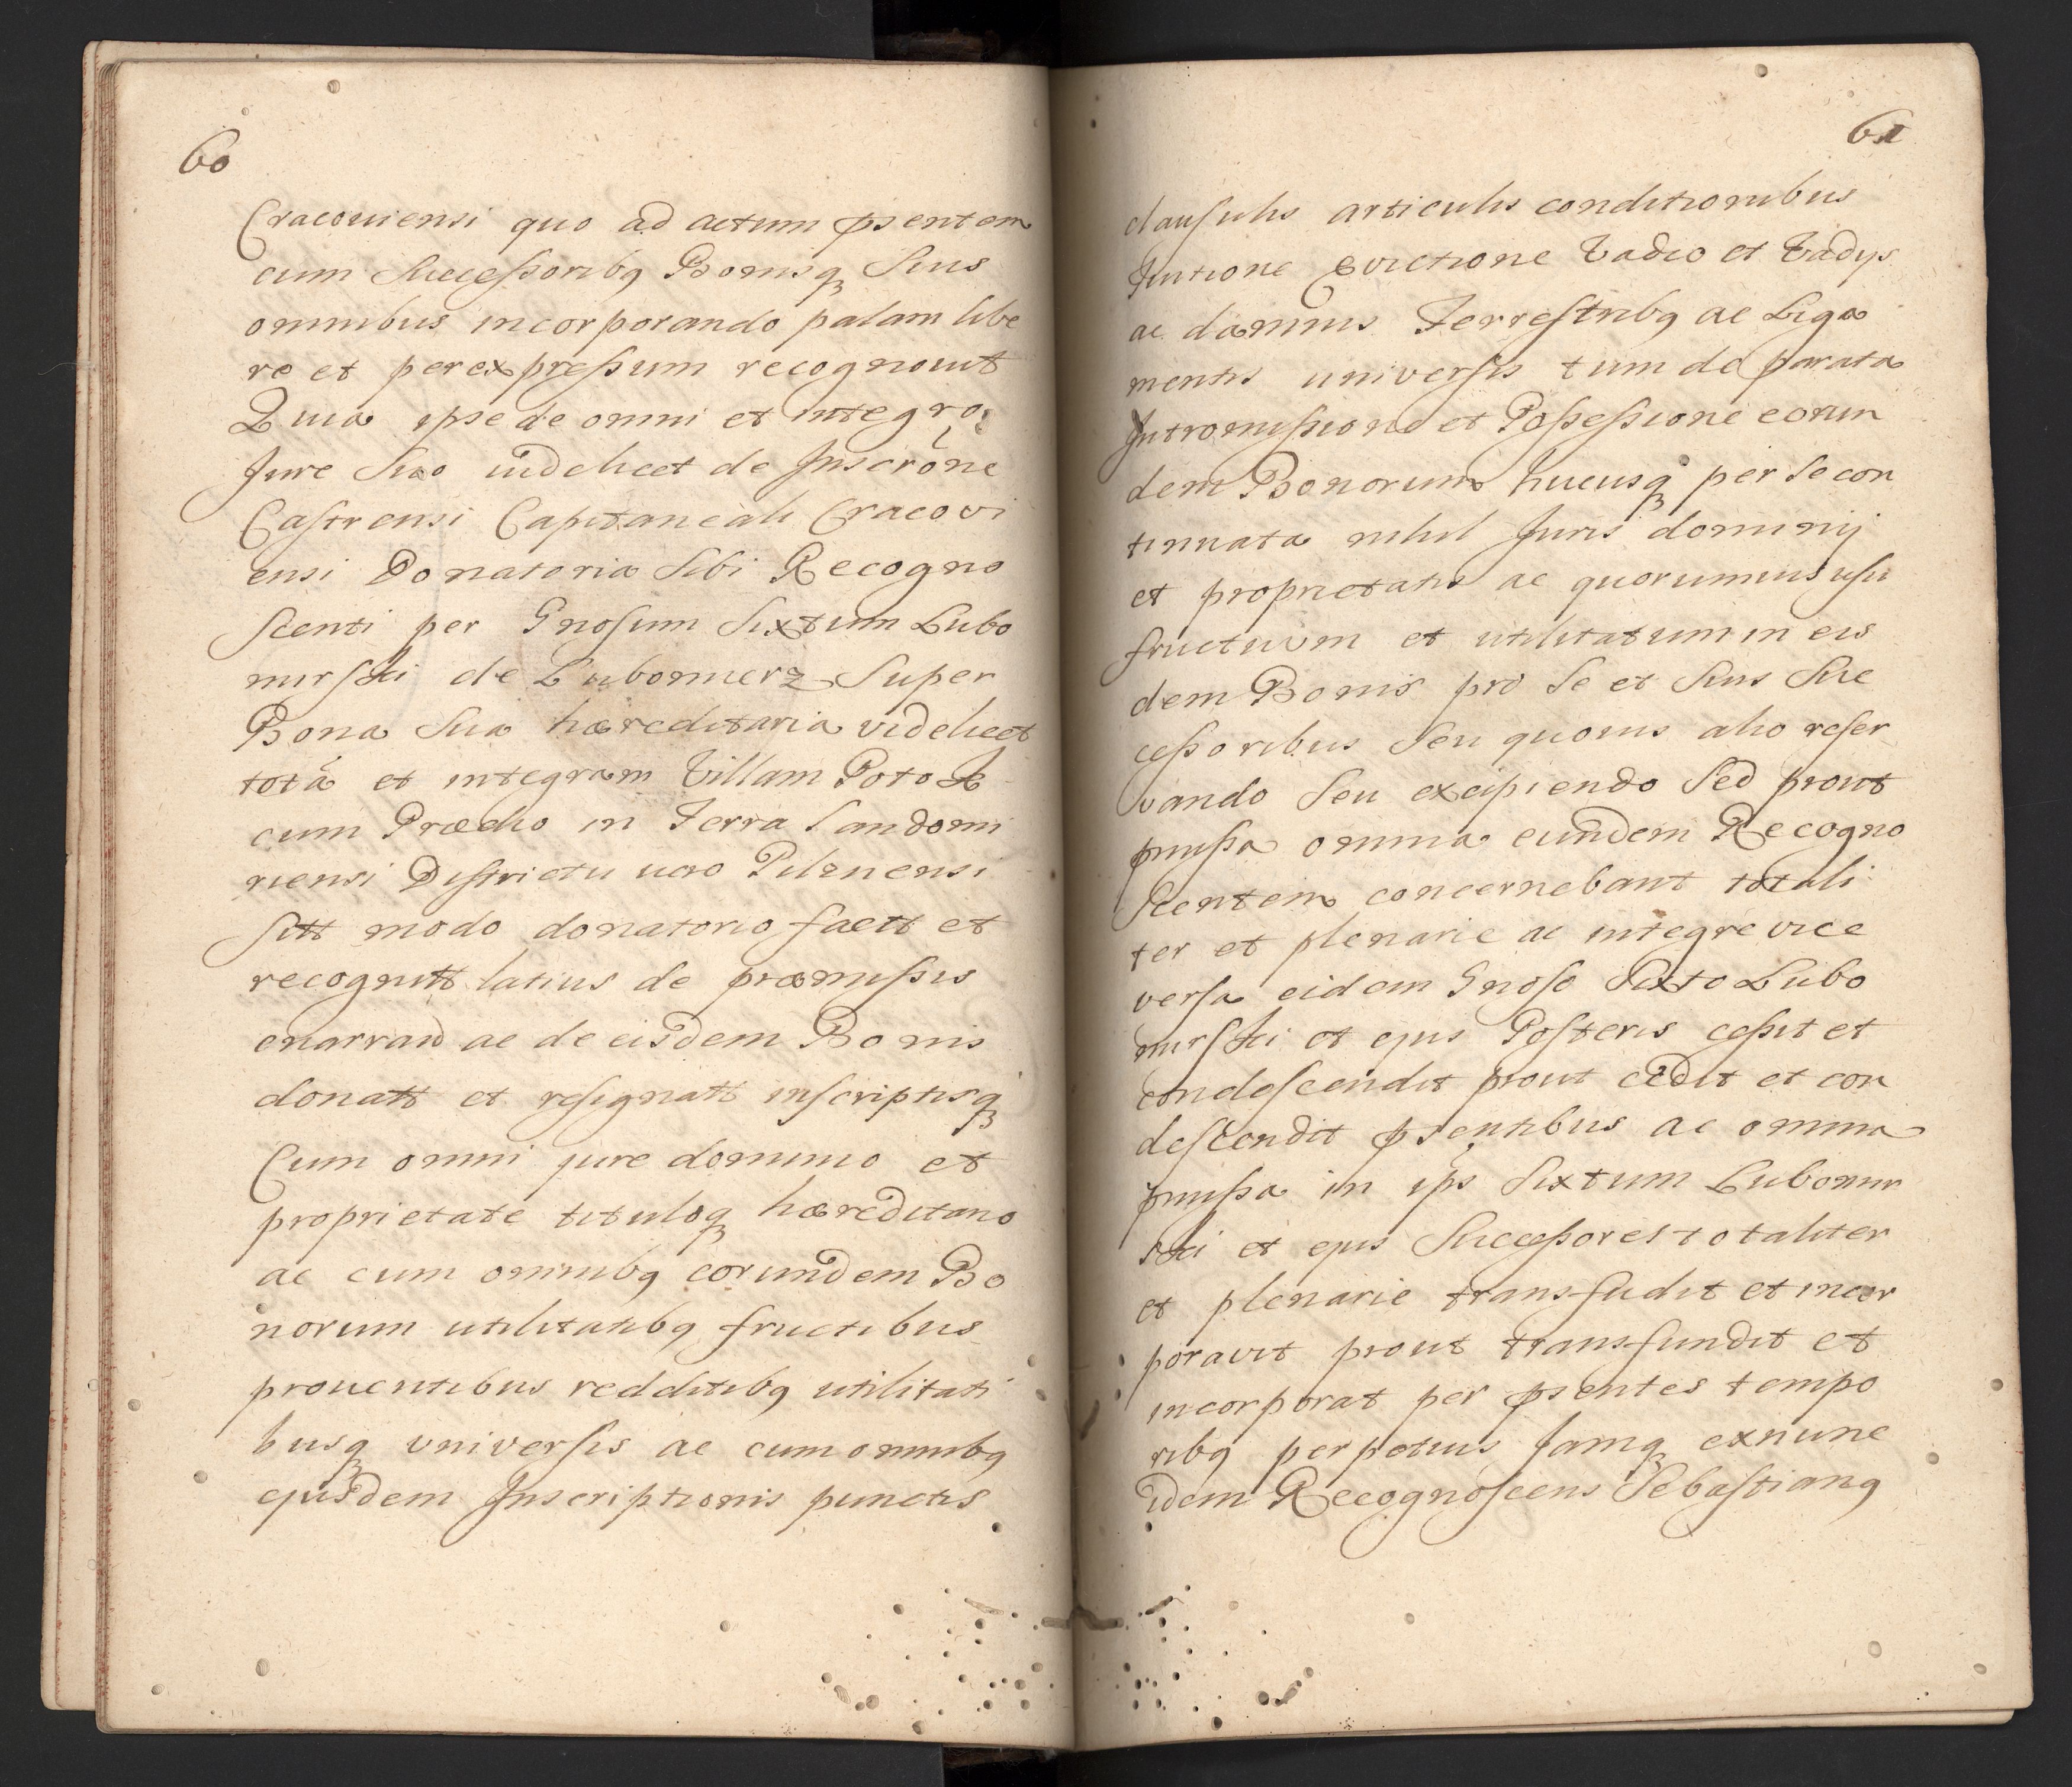 60
Cracouiensi quo ad actum pśentem
cum Successoribq Bonisq Suis
omnibus incorporando palam libe
re et per expressum recognouit
Quia ipse de omni et integro
Jure Suo uidelicet de Inscrōne
Castrensi Capitaneali Cracovi
ensi Donatoria Sibi Recogno
scenti per Gnosum Sixtum Lubo
mirski de Lubomierz Super
Bona Sua hæreditaria videlicet
totã et integram Villam Potok
cum Prædio in Terra Sandomi
riensi Districtu uero Pilznensi
sitt modo donatorio factt et
recognitt latius de præmissis
enarrand ac de eisdem Bonis
donatt et resignatt inscriptisq
Cum omni jure dominio et
proprietate tituloq hæreditario
ac cum omnibq eorumdem Bo
norum utilitatibq fructibus
prouentibus redditibq utilitati
busq vniversis ac cum omnibq
ejusdem Inscriptionis punctis
61
clausulis articulis conditionibus
Intione Evictione Vadio et Vadys
ac damnis Terrestribq ac Liga
mentis universis tum de parata
Intromissione et Possessione eorun
dem Bonorum hucusq per Se con
tinuata nihil Juris dominij
et proprietatis ac quorumuis usu
fructuum et utilitatum in eis
dem Bonis pro Se et Suis Suc
cessoribus Seu quouis alio reser
vando Seu excipiendo Sed prout
pmissa omnia eundem Recogno
Scentem concernebant totali
ter et plenarie ac integre vice
versa eidem Gnoso Sixto Lubo
mirski et ejus Posteris cessit et
condescendit prout cedit et con
descendit pśentibus ac omnia
pmissa in ips Sixtum Lubomir
ski et ejus Successores totaliter
et plenarie transfudit et incor
poravit prout transfundit et
incorporat per pśentes tempo
ribq perpetuis Jamq exnunc
idem Recognoscens Sebastianq